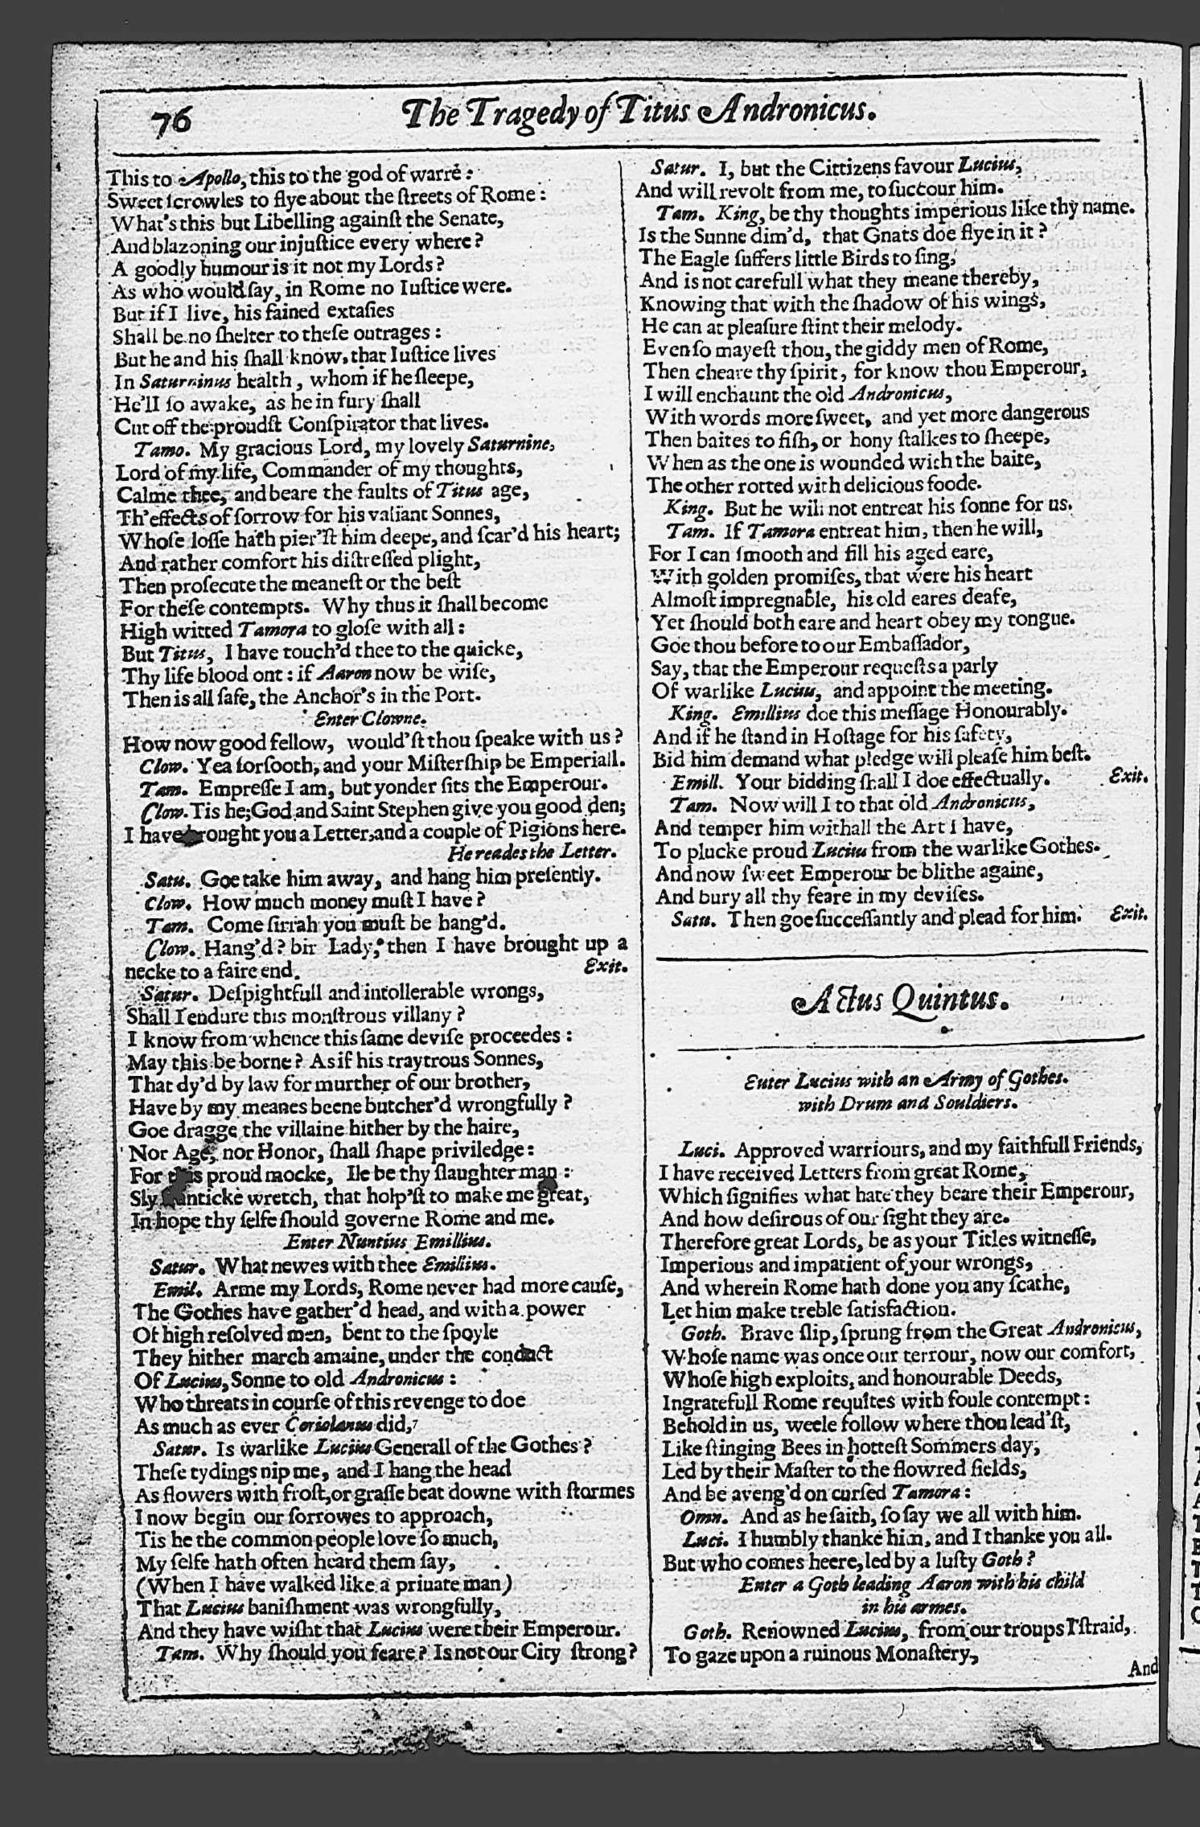 76
The Tragedy of Titus Andronicus.
This to Apollo, this to the god of warre:
Sweet scrowles to flye about the ſtreets of Rome:
What's this but Libelling againſt the Senate,
And blazoning our injuſtice every where?
A goodly humour is it not my Lords?
As who would ſay, in Rome no Iuſtice were.
But if I live, his fained extaſies
Shall be no ſhelter to theſe outrages:
But he and his ſhall know, that Iuſtice lives
In Saturninus health, whom if he ſleepe,
He'll ſo awake, as he in fury ſhall
Cut off the proudſt Conſpirator that lives.
Tamo. My gracious Lord, my lovely Saturnine,
Lord of my life, Commander of my thoughts,
Calme thee, and beare the faults of Titus age,
Th'effects of ſorrow for his valiant Sonnes,
Whoſe loſſe hath pier'ſt him deepe, and ſcar'd his heart;
And rather comfort his diſtreſſed plight,
Then proſecute the meaneſt or the beſt
For theſe contempts. Why thus it ſhall become
High witted Tamora to gloſe with all:
But Titus, I have touch'd thee to the quicke,
Thy life blood ont: if Aaron now be wiſe,
Then is all ſafe, the Anchor's in the Port.
Enter Clowne.
How now good fellow, would'ſt thou ſpeake with us?
Clow. Yea forſooth, and your Miſterſhip be Emperiall.
Tam. Empreſſe I am, but yonder ſits the Emperour.
Clow. Tis he; God and Saint Stephen give you good den;
I have brought you a Letter, and a couple of Pigions here.
He reades the Letter.
Satu. Goe take him away, and hang him preſently.
Clow. How much money muſt I have?
Tam. Come ſirrah you muſt be hang'd.
Clow. Hang'd? bir Lady, then I have brought up a
necke to a faire end. Exit.
Satur. Deſpightfull and intollerable wrongs,
Shall I endure this monſtrous villany?
I know from whence this ſame deviſe proceedes:
May this be borne? As if his traytrous Sonnes,
That dy'd by law for murther of our brother,
Have by my meanes beene butcher'd wrongfully?
Goe dragge the villaine hither by the haire,
Nor Age, nor Honor, ſhall ſhape priviledge:
For this proud mocke, Ile be thy ſlaughter man:
Sly franticke wretch, that holp'ſt to make me great,
In hope thy ſelfe ſhould governe Rome and me.
Enter Nuntius Emillius.
Satur. What newes with thee Emillius.
Emil. Arme my Lords, Rome never had more cauſe,
The Gothes have gather'd head, and with a power
Of high reſolved men, bent to the ſpoyle
They hither march amaine, under the conduct
Of Lucius, Sonne to old Andronicus:
Who threats in courſe of this revenge to doe
As much as ever Coriolanus did,
Satur. Is warlike Lucius Generall of the Gothes?
Theſe tydings nip me, and I hang the head
As flowers with froſt, or graſſe beat downe with ſtormes
I now begin our ſorrowes to approach,
Tis he the common people love ſo much,
My ſelfe hath often heard them ſay,
(When I have walked like a priuate man)
That Lucius baniſhment was wrongfully,
And they have wiſht that Lucius were their Emperour.
Tam. Why ſhould you feare? Is not our City ſtrong?
Satur. I, but the Cittizens favour Lucius,
And will revolt from me, to ſuccour him.
Tam. King, be thy thoughts imperious like thy name.
Is the Sunne dim'd, that Gnats doe flye in it?
The Eagle ſuffers little Birds to ſing,
And is not carefull what they meane thereby,
Knowing that with the ſhadow of his wings,
He can at pleaſure ſtint their melody.
Even ſo mayeſt thou, the giddy men of Rome,
Then cheare thy ſpirit, for know thou Emperour,
I will enchaunt the old Andronicus,
With words more ſweet, and yet more dangerous
Then baites to fiſh, or hony ſtalkes to ſheepe,
When as the one is wounded with the baite,
The other rotted with delicious foode.
King. But he will not entreat his ſonne for us.
Tam. If Tamora entreat him, then he will,
For I can ſmooth and fill his aged eare,
With golden promiſes, that were his heart
Almoſt impregnable, his old eares deafe,
Yet ſhould both eare and heart obey my tongue.
Goe thou before to our Embaſſador,
Say, that the Emperour requeſts a parly
Of warlike Lucius, and appoint the meeting.
King. Emillius doe this meſſage Honourably.
And if he ſtand in Hoſtage for his ſafety,
Bid him demand what pledge will pleaſe him beſt.
Emill. Your bidding ſhall I doe effectually. Exit.
Tam. Now will I to that old Andronicus,
And temper him withall the Art I have,
To plucke proud Lucius from the warlike Gothes.
And now ſweet Emperour be blithe againe,
And bury all thy feare in my deviſes.
Satu. Then goe ſucceſſantly and plead for him. Exit.
Actus Quintus.
Enter Lucius with an Army of Gothes.
with Drum and Souldiers.
Luci. Approved warriours, and my faithfull Friends,
I have received Letters from great Rome,
Which ſignifies what hate they beare their Emperour,
And how deſirous of our ſight they are.
Therefore great Lords, be as your Titles witneſſe,
Imperious and impatient of your wrongs,
And wherein Rome hath done you any ſcathe,
Let him make treble ſatisfaction.
Goth. Brave ſlip, ſprung from the Great Andronicus,
Whoſe name was once our terrour, now our comfort,
Whoſe high exploits, and honourable Deeds,
Ingratefull Rome requites with foule contempt:
Behold in us, weele follow where thou lead'ſt,
Like ſtinging Bees in hotteſt Sommers day,
Led by their Maſter to the flowred fields,
And be aveng'd on curſed Tamora:
Omn. And as he ſaith, ſo ſay we all with him.
Luci. I humbly thanke him, and I thanke you all.
But who comes heere, led by a luſty Goth?
Enter a Goth leading Aaron with his child
in his armes.
Goth. Renowned Lucius, from our troups I ſtraid,
To gaze upon a ruinous Monaſtery,
And